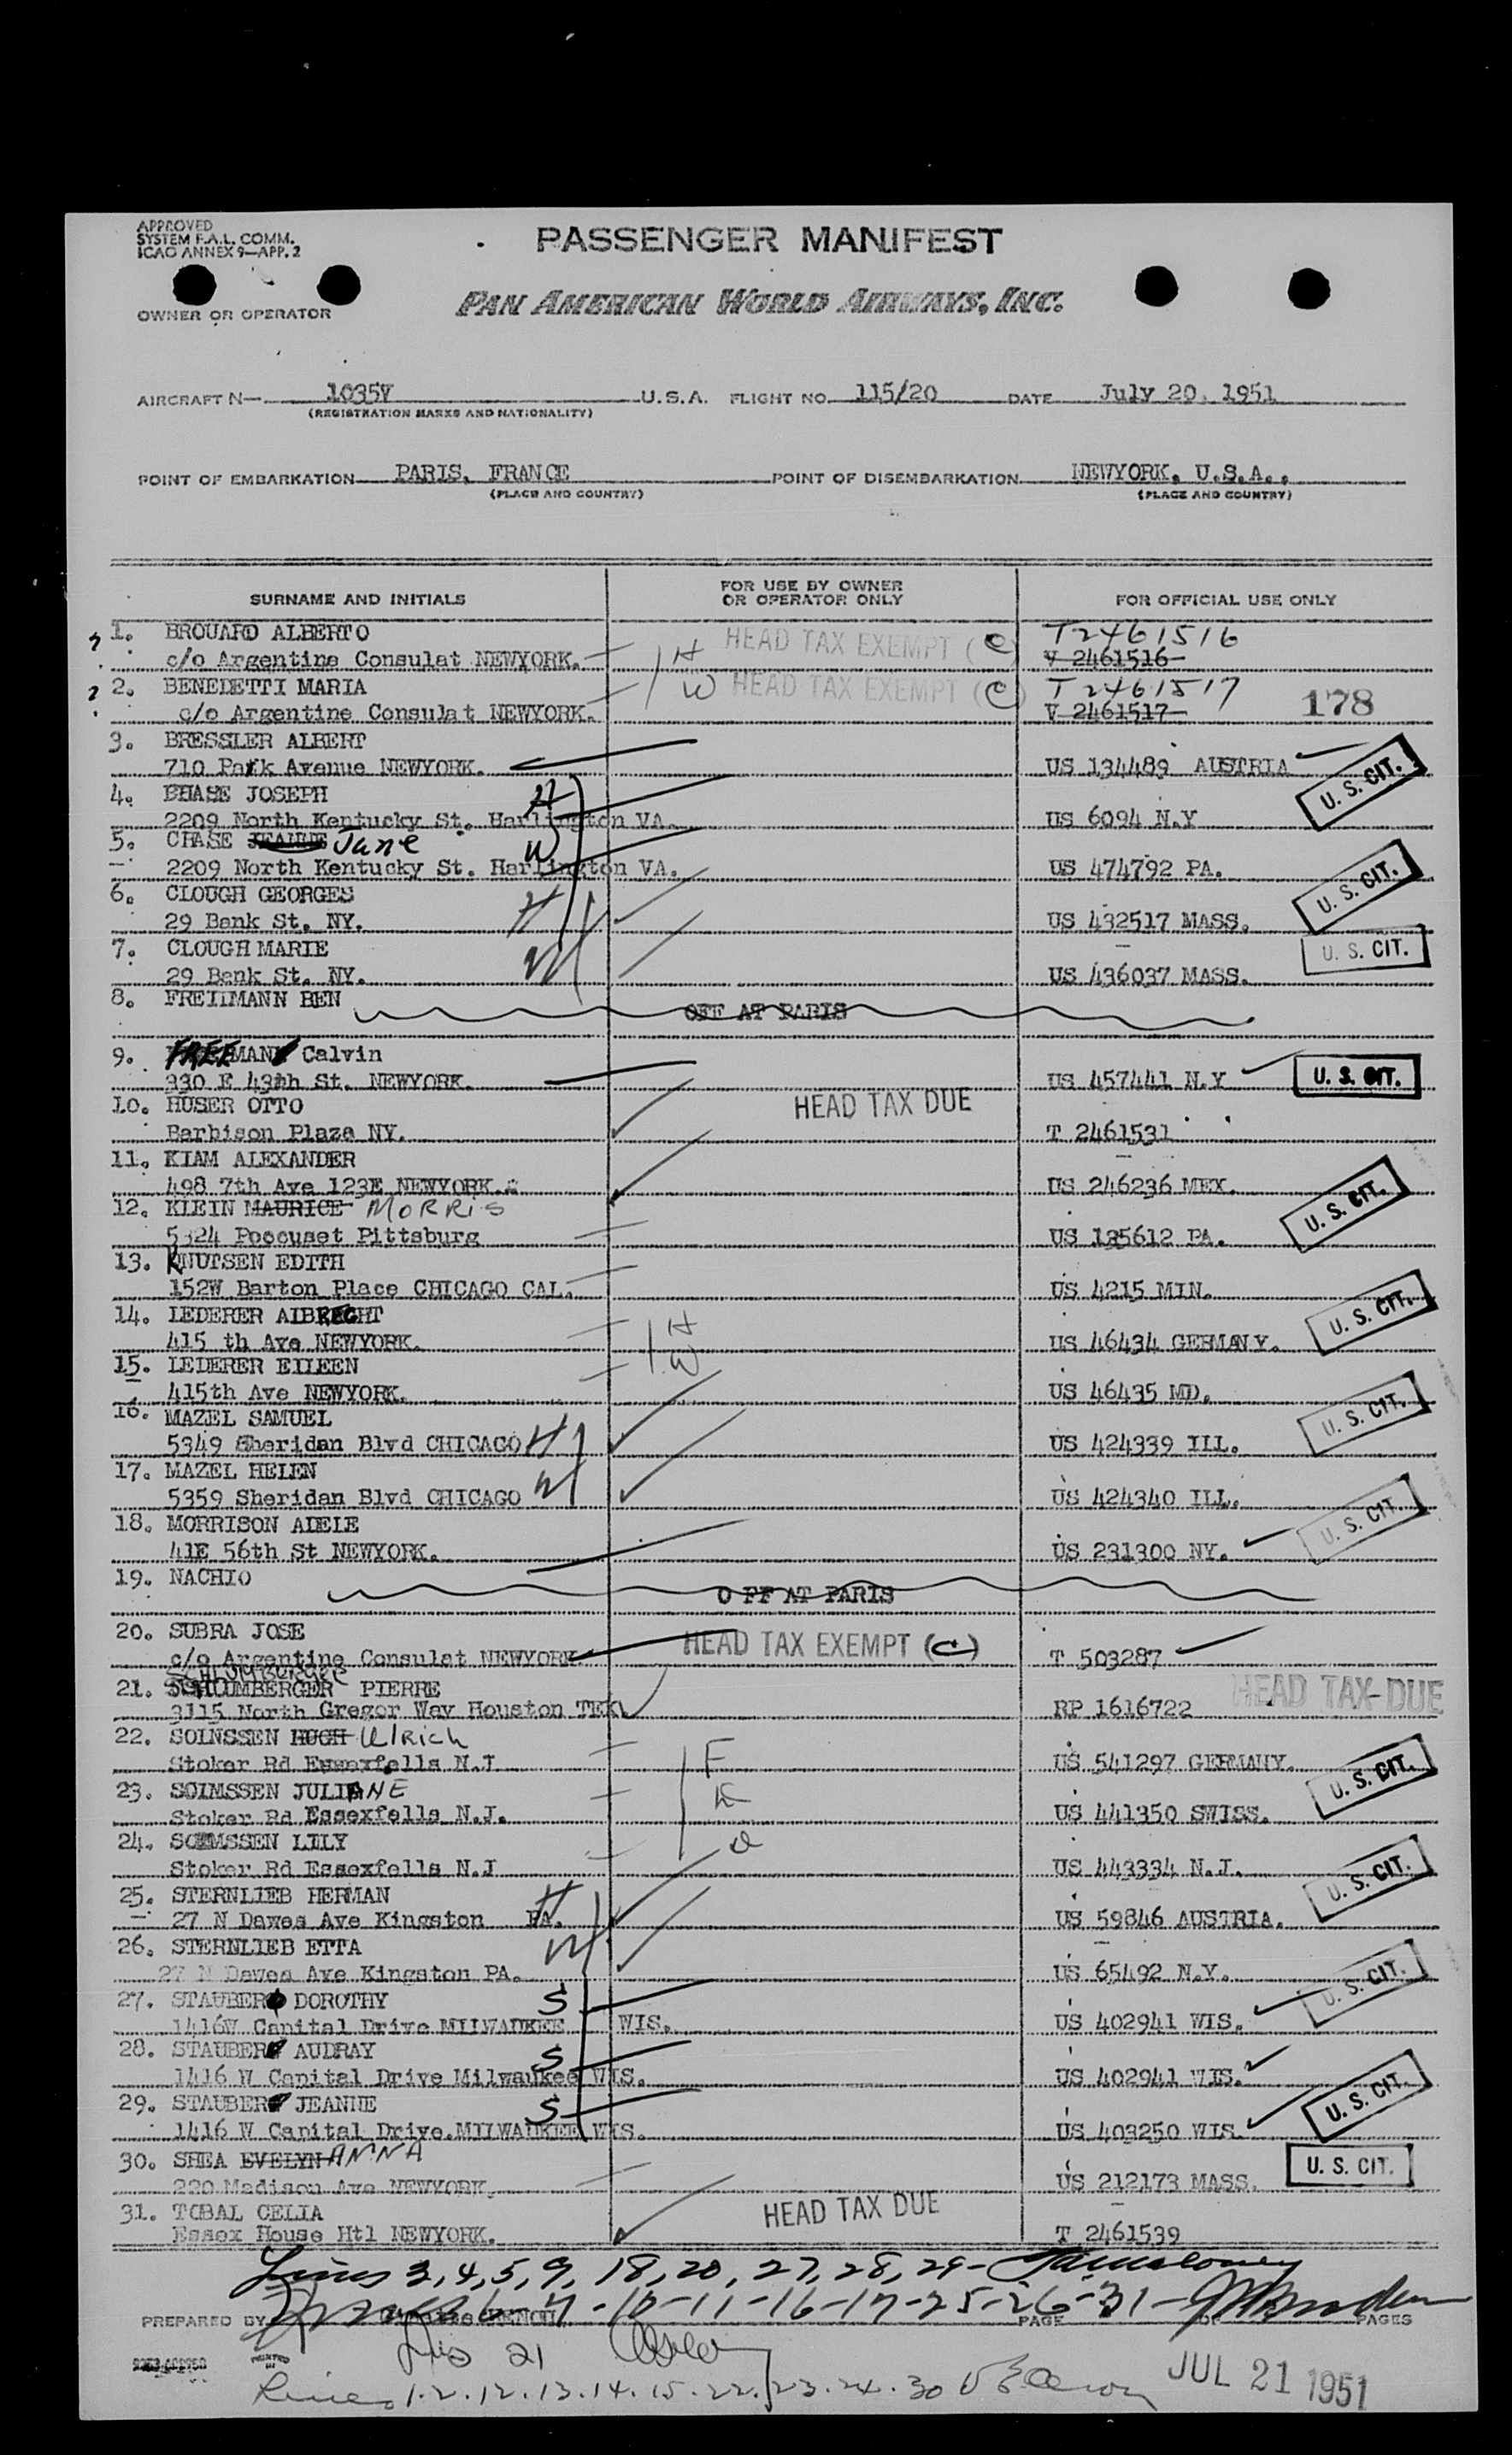 APPROVED
SYSTEM F.A.L. COMM.
ICAO ANNEX 9—APP. 2
PASSENGER MANIFEST
OWNER OR OPERATOR
PAN AMERICAN WORLD AIRWAYS, INC.
AIRCRAFT N— 1035V U.S.A. FLIGHT NO. 115/20 DATE July 20, 1951
(REGISTRATION MARKS AND NATIONALITY)
POINT OF EMBARKATION PARIS, FRANCE POINT OF DISEMBARKATION NEWYORK, U.S.A..
(PLACE AND COUNTRY) (PLACE AND COUNTRY)
SURNAME AND INITIALS FOR USE BY OWNER OR OPERATOR ONLY FOR OFFICIAL USE ONLY
1. BROUARD ALBERTO HEAD TAX EXEMPT (C) T2461516
c/o Argentine Consulat NEWYORK. H V 2461516
2. BENEDETTI MARIA W HEAD TAX EXEMPT (C) T2461517
c/o Argentine Consulat NEWYORK. V 2461517 178
3. BRESSLER ALBERT
710 Park Avenue NEWYORK. US 134489 AUSTRIA U.S. CIT.
4. CHASE JOSEPH H
2209 North Kentucky St. Harlington VA. US 6094 N.Y
5. CHASE Jane W
2209 North Kentucky St. Harlington VA. US 474792 PA. U.S. CIT.
6. CLOUGH GEORGES H
29 Bank St. NY. US 432517 MASS.
7. CLOUGH MARIE W U.S. CIT.
29 Bank St. NY. US 436037 MASS.
8. FREIIMANN BEN OFF AT PARIS
9. FREEMAN Calvin
330 E 43th St. NEWYORK. US 457441 N.Y U.S. CIT.
10. HUSER OTTO HEAD TAX DUE
Barbison Plaza NY. T 2461531
11. KIAM ALEXANDER
498 7th Ave 123E NEWYORK. US 246236 MEX. U.S. CIT.
12. KLEIN MAURICE MORRIS
5324 Poccuset Pittsburg US 135612 PA.
13. KNUTSEN EDITH
152W Barton Place CHICAGO CAL. US 4215 MIN.
14. LEDERER ALBRECHT H U.S. CIT.
415 th Ave NEWYORK. US 46434 GERMANY.
15. LEDERER EILEEN W
415th Ave NEWYORK. US 46435 MD.
16. MAZEL SAMUEL U.S. CIT.
5349 Sheridan Blvd CHICAGO H US 424339 ILL.
17. MAZEL HELEN W
5359 Sheridan Blvd CHICAGO US 424340 ILL.
18. MORRISON ADELE U.S. CIT.
41E 56th St NEWYORK. US 231300 NY.
19. NACHIO OFF AT PARIS
20. SUBRA JOSE HEAD TAX EXEMPT (C)
c/o Argentine Consulat NEWYORK. T 503287
SCHLUMBERGER
21. SCHLUMBERGER PIERRE HEAD TAX DUE
3115 North Gregor Way Houston TEX RP 1616722
22. SOLNSSEN HUGH Ulrich F
Stoker Rd Essexfells N.J US 541297 GERMANY. U.S. CIT.
23. SOLMSSEN JULIANE
Stoker Rd Essexfells N.J. US 441350 SWISS.
24. SOLMSSEN LILY
Stoker Rd Essexfells N.J US 443334 N.J. U.S. CIT.
25. STERNLIEB HERMAN H
27 N Dawes Ave Kingston PA. US 59846 AUSTRIA.
26. STERNLIEB ETTA W
27 N Dawes Ave Kingston PA. US 65492 N.Y. U.S. CIT.
27. STAUBER DOROTHY S
1416W Capital Drive MILWAUKEE WIS. US 402941 WIS.
28. STAUBER AUDRAY S
1416 W Capital Drive Milwaukee WIS. US 402941 WIS.
29. STAUBER JEANNE S U.S. CIT.
1416 W Capital Drive.MILWAUKEE WIS. US 403250 WIS.
30. SHEA EVELYN ANNA U.S. CIT.
220 Madison Ave NEWYORK. US 212173 MASS.
31. TOBAL CELIA HEAD TAX DUE
Essex House Htl NEWYORK. T 2461539
Lines 3,4,5,9, 18,20, 27,28,29-
6-7-10-11-16-17-25-26-31-
PREPARED BY PAGE OF PAGES
21
Lines 1.2.12.13.14.15.22.23.24.30
JUL 21 1951